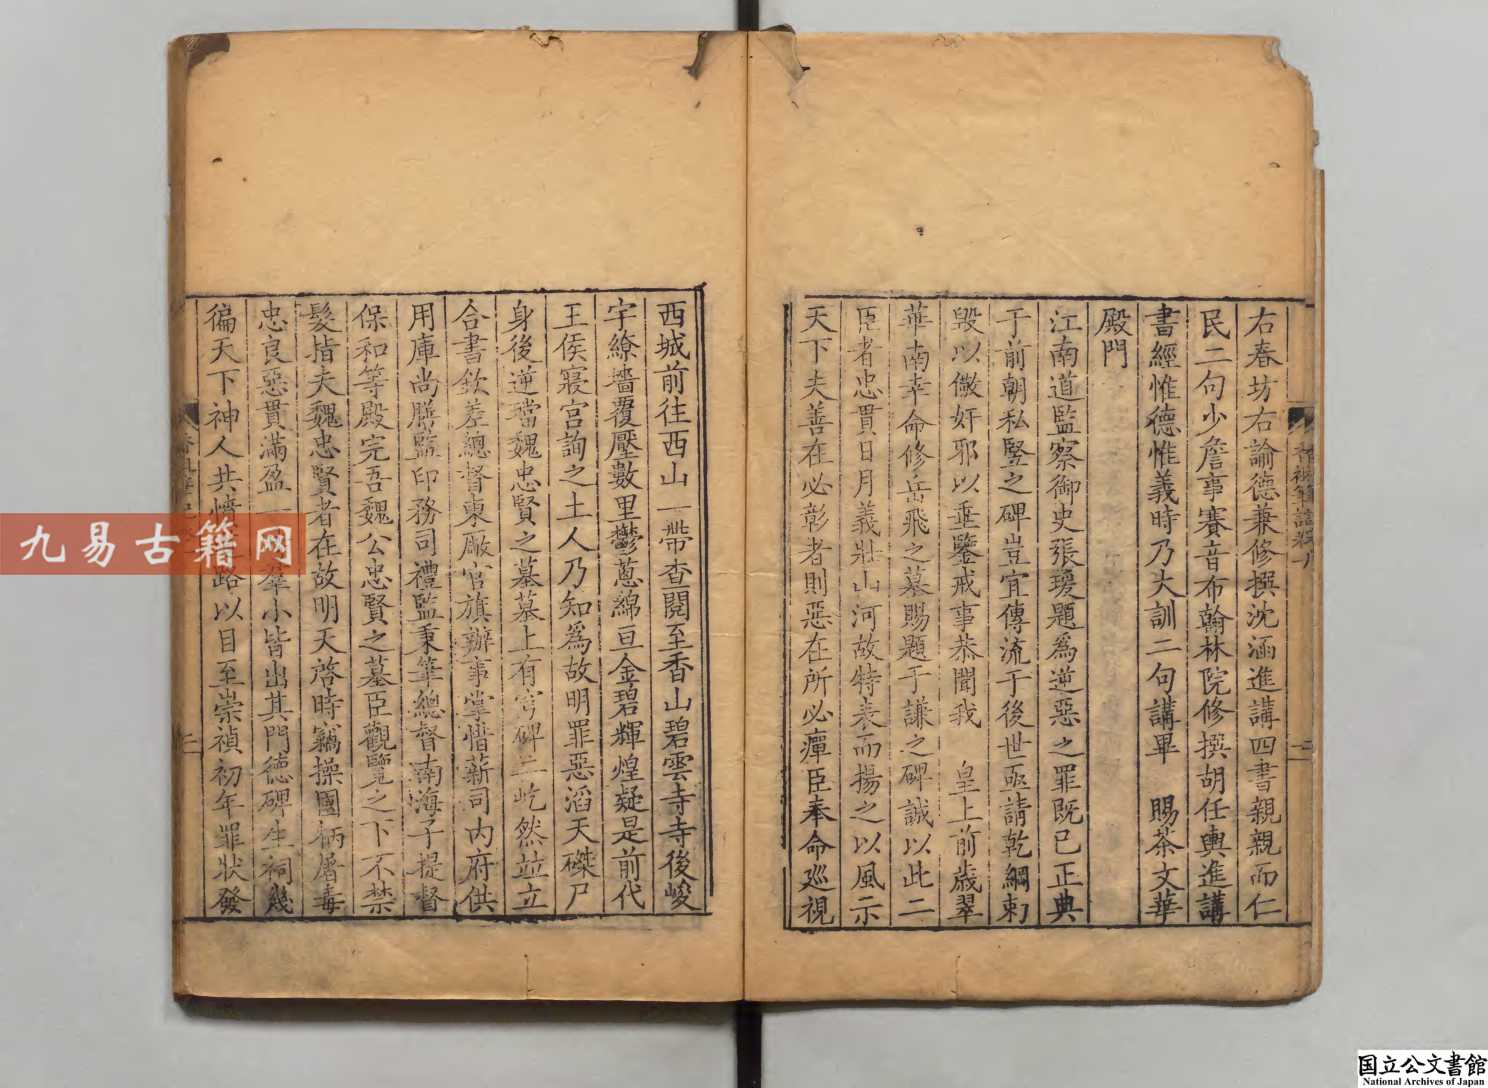 右春坊右諭德兼修撰沈涵進講四書親親而仁
民二句少詹事賽音布翰林院修撰胡任輿進講
書經惟德惟義時乃大訓二句講畢 賜茶文華
殿門
江南道監察御史張瑗題爲逆惡之罪既已正典
于前朝私竪之碑豈宜傳流于後世亟請乾綱剌
毀以儆奸邪以垂鑒戒事恭聞我 皇上前歲翠
華南幸命修岳飛之墓賜題于謙之碑誠以此二
臣者忠貫日月義壯山河故特表而揚之以風示
天下夫善在必彰者則惡在所必癉臣奉命廵視
西城前往西山一帶查閱至香山碧雲寺寺後峻
宇繚墻覆壓數里鬱蔥綿亘金碧輝煌疑是前代
王侯寢宫詢之土人乃知爲故明罪惡滔天磔尸
身後逆璫魏忠賢之墓墓上有穹碑二屹然竝立
合書欽差總督東厰官旗辦事掌惜薪司内府供
用庫尚膳監印務司禮監秉筆總督南海子提督
保和等殿完吾魏公忠賢之墓臣觀覽之下不禁
髮指夫魏忠賢者在故明天啓時竊操國柄屠毒
忠良惡貫滿盈一羣小皆出其門德碑生祠幾
徧天下神人共憤路以目至崇禎初年罪狀發
二
九易古籍网
国立公文書館
National Archives of Japan